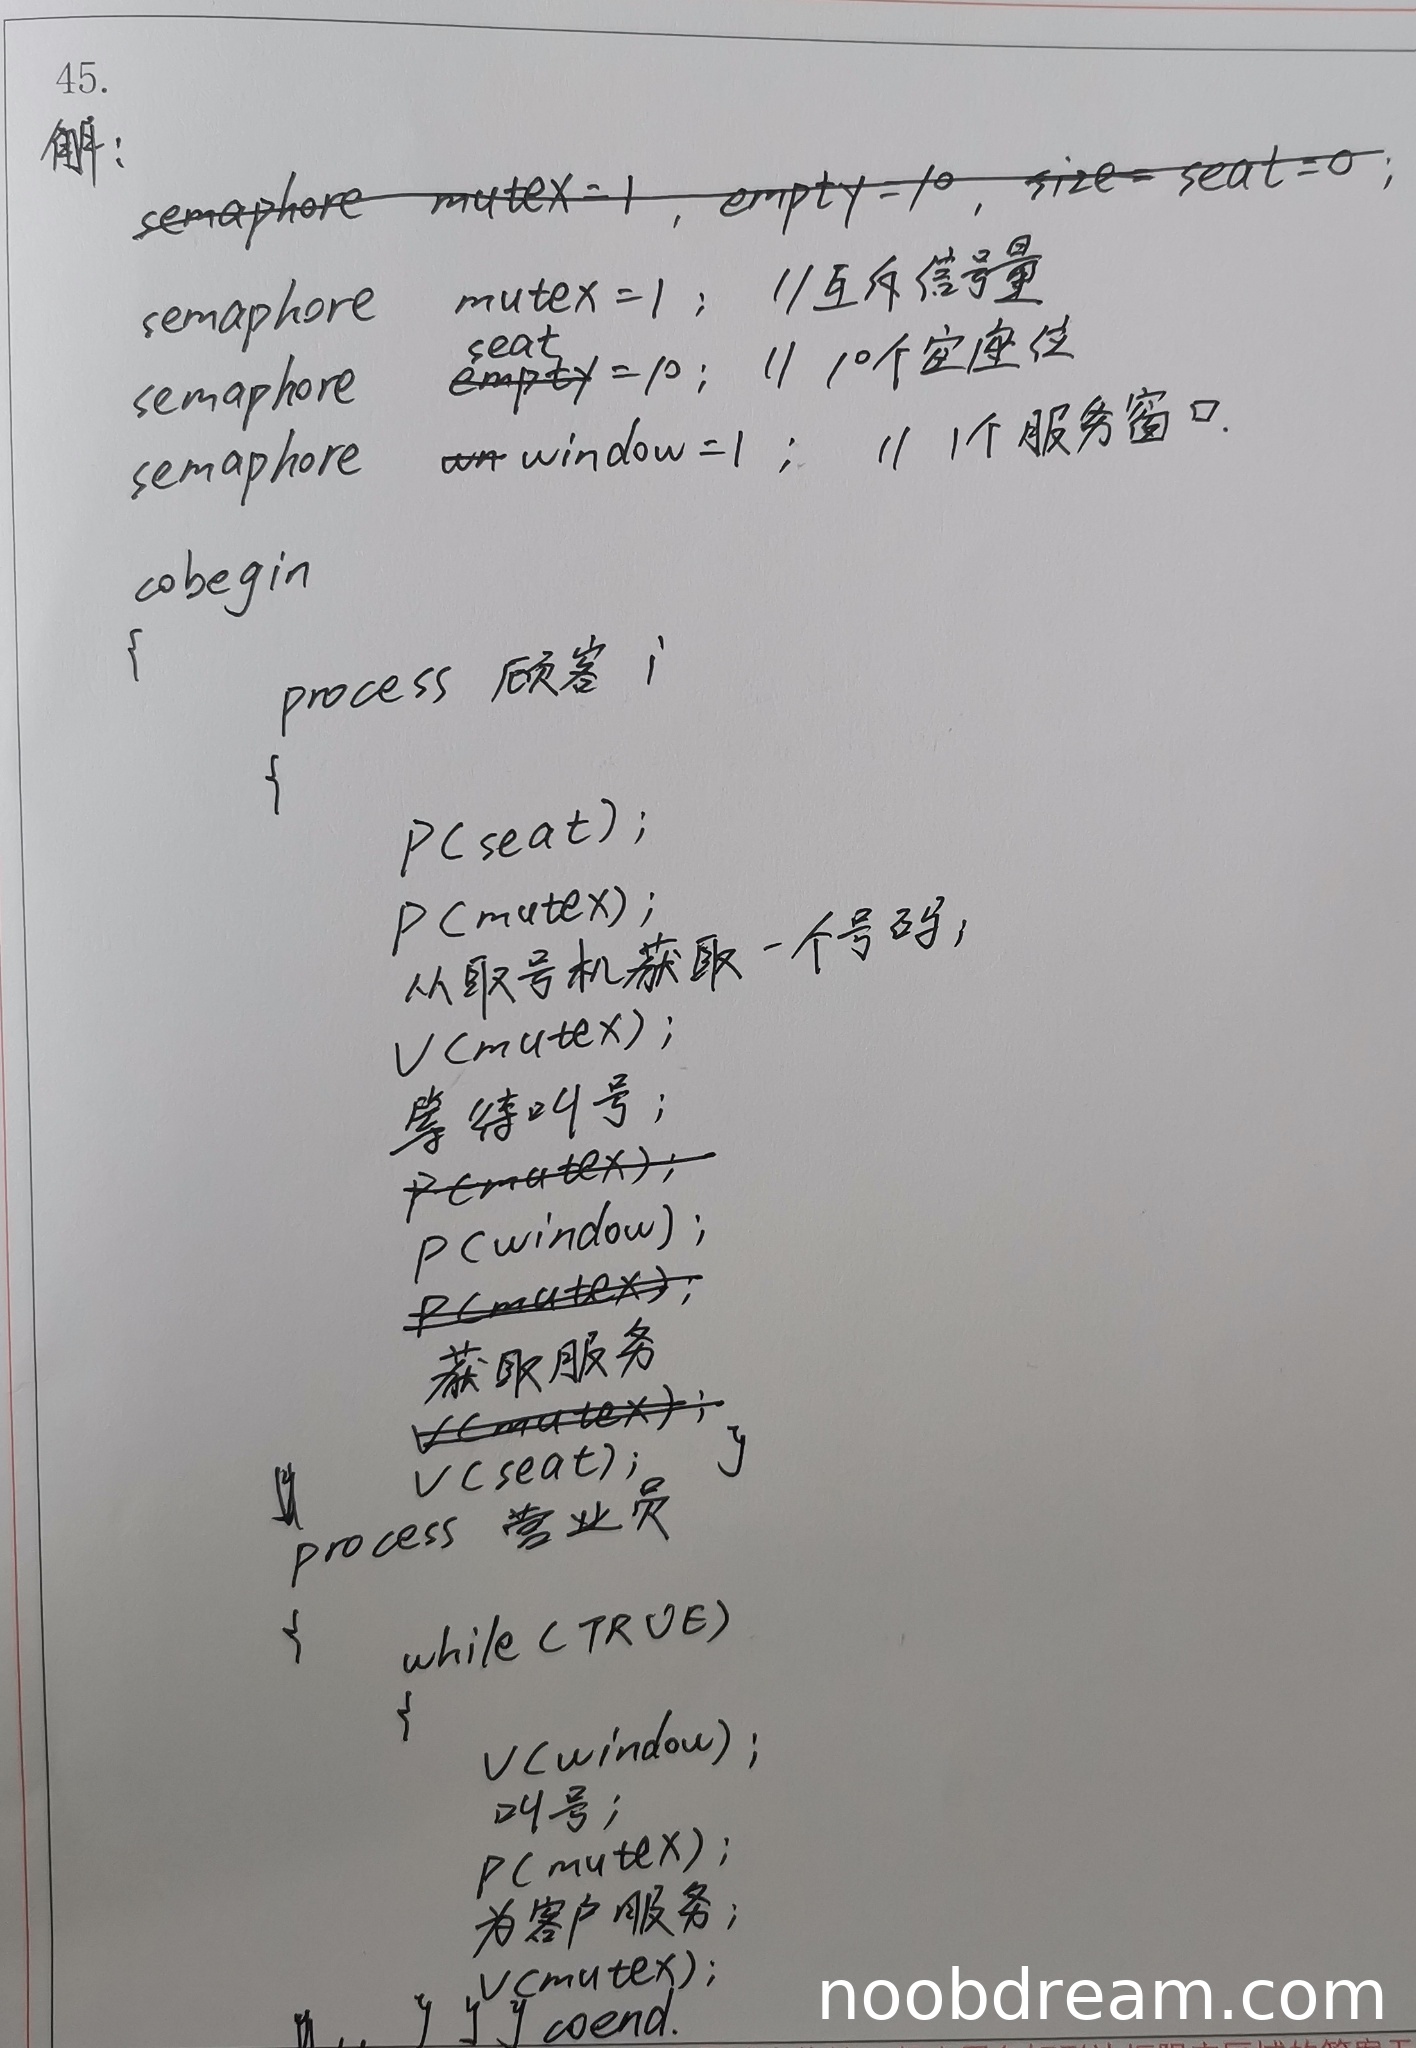 45.
解：
semaphore mutex=1, empty=10, size= seat=0;
semaphore mutex=1; //互斥信号量
seat
semaphore empty=10; // 10个空座位
semaphore wn window=1; // 1个服务窗口.
cobegin
{
process 顾客 i
{
P(seat);
P(mutex);
从取号机获取一个号码;
V(mutex);
等待叫号;
P(mutex);
P(window);
P(mutex);
获取服务
V(mutex);
V(seat); }
process 营业员
{ while(TRUE)
{
V(window);
叫号;
P(mutex);
为客户服务;
V(mutex);
} } } coend.
noobdream.com